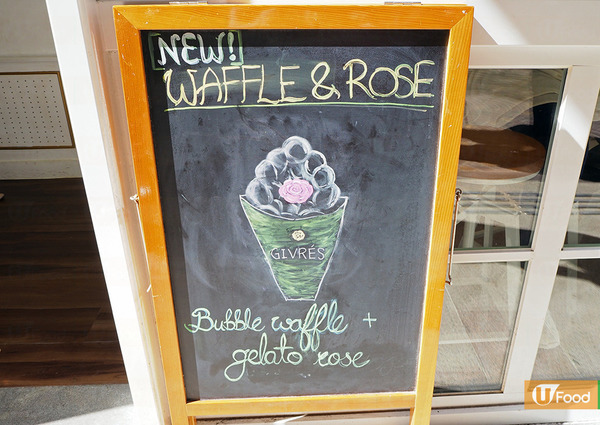 NEW!
WAFFLE & ROSE
GIVRÉS
Bubble waffle +
gelato rose
U Food